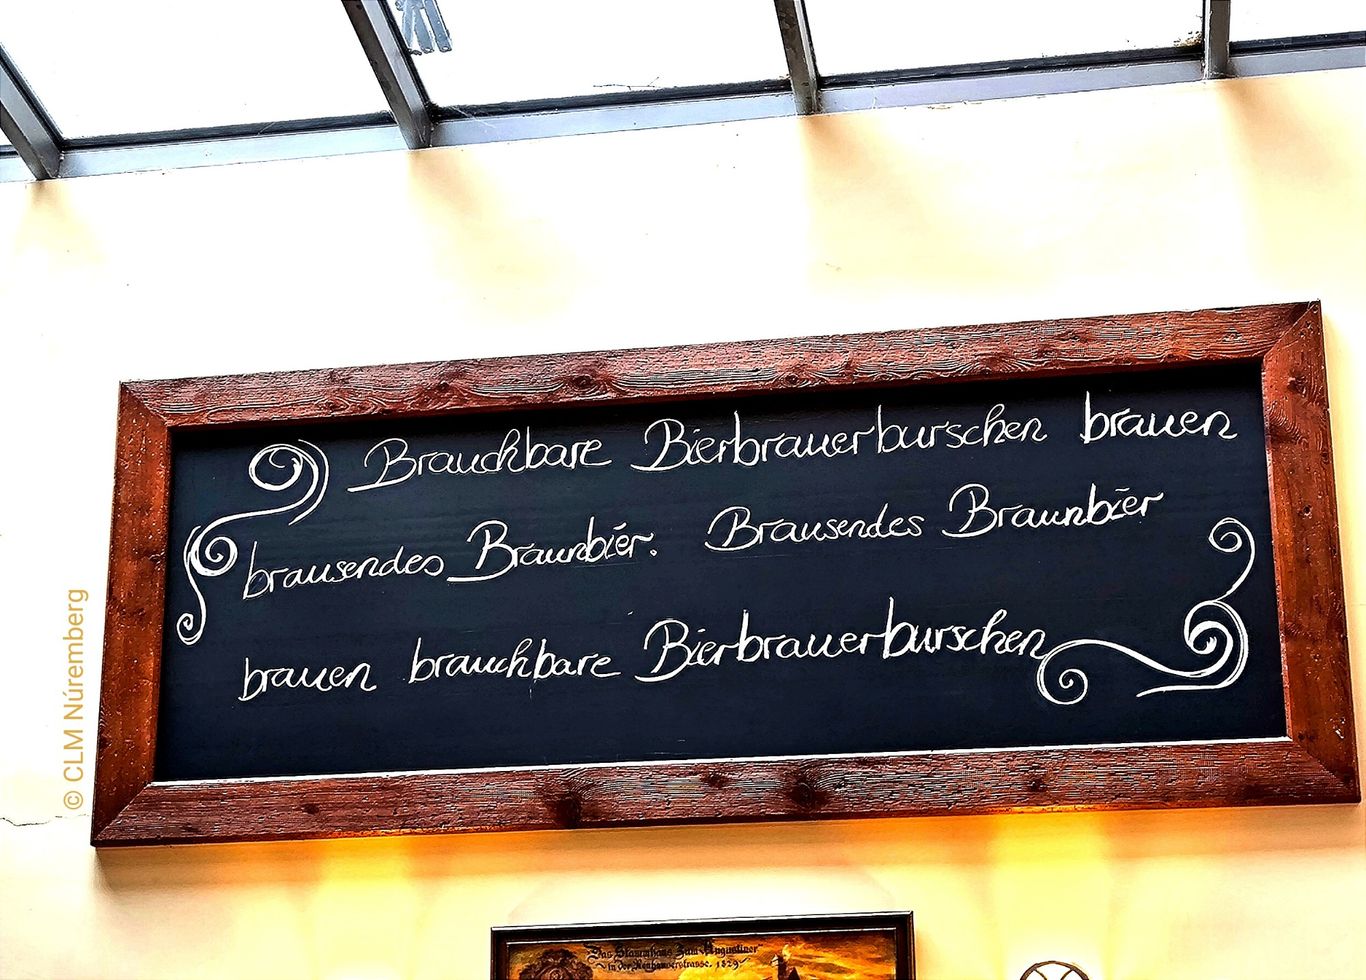 Brauchbare Bierbrauerburschen brauen
brausendes Braunbier. Brausendes Braunbier
brauen brauchbare Bierbrauerburschen
© CLM Núremberg
Das Stammhaus Zum Augustiner
in der Neuhauserstrasse. 1829